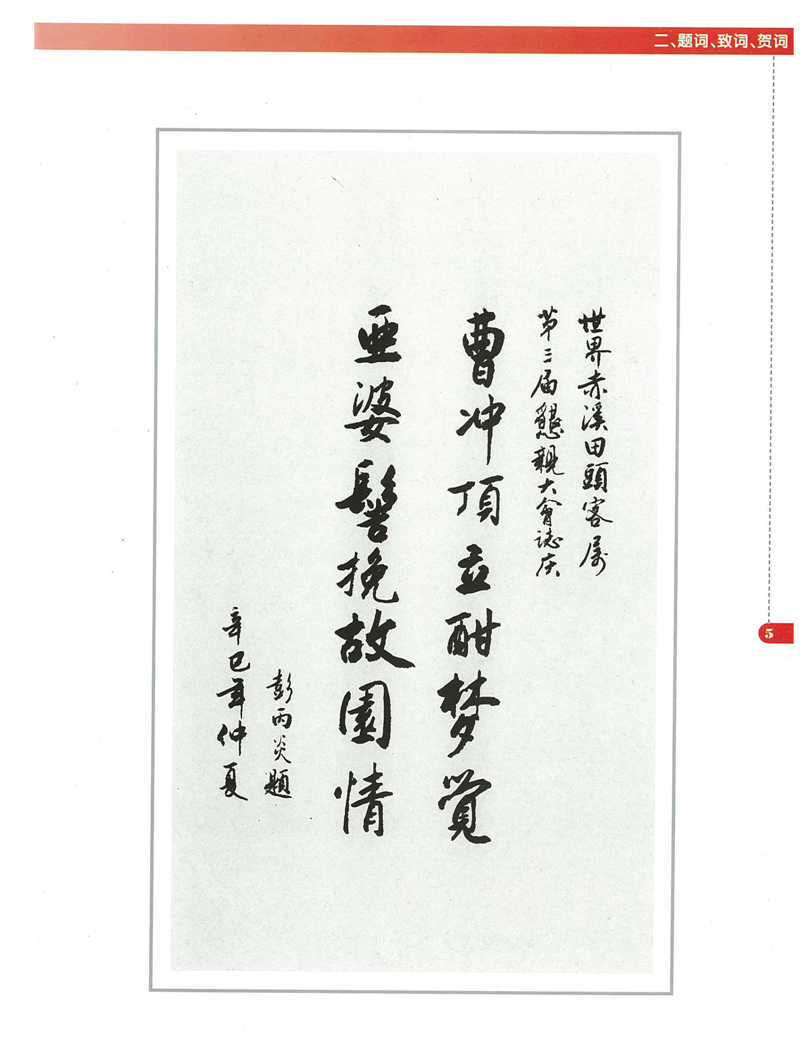 二、题词、致词、贺词
世界赤溪田頭客属
第三届懇親大會誌庆
曹冲頂立酣梦覺
亜婆髻挽故園情
彭丙炎題
辛巳年仲夏
5